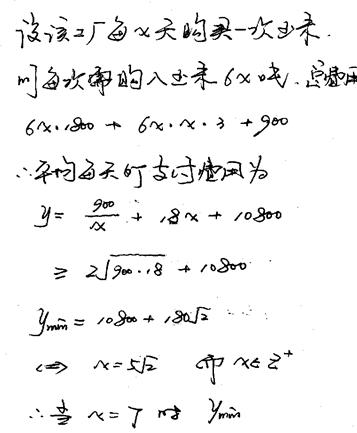 设该工厂每x天购买一次玉米.
则每次需购入玉米6x吨.总费用
6x·1800 + 6x·x·3 + 900
∴平均每天所支付费用为
y = 900/x + 18x + 10800
≥ 2√(900·18) + 10800
ymin = 10800 + 180√2
⟺ x = 5√2 即 x∈Z⁺
∴当 x = 7 时 ymin